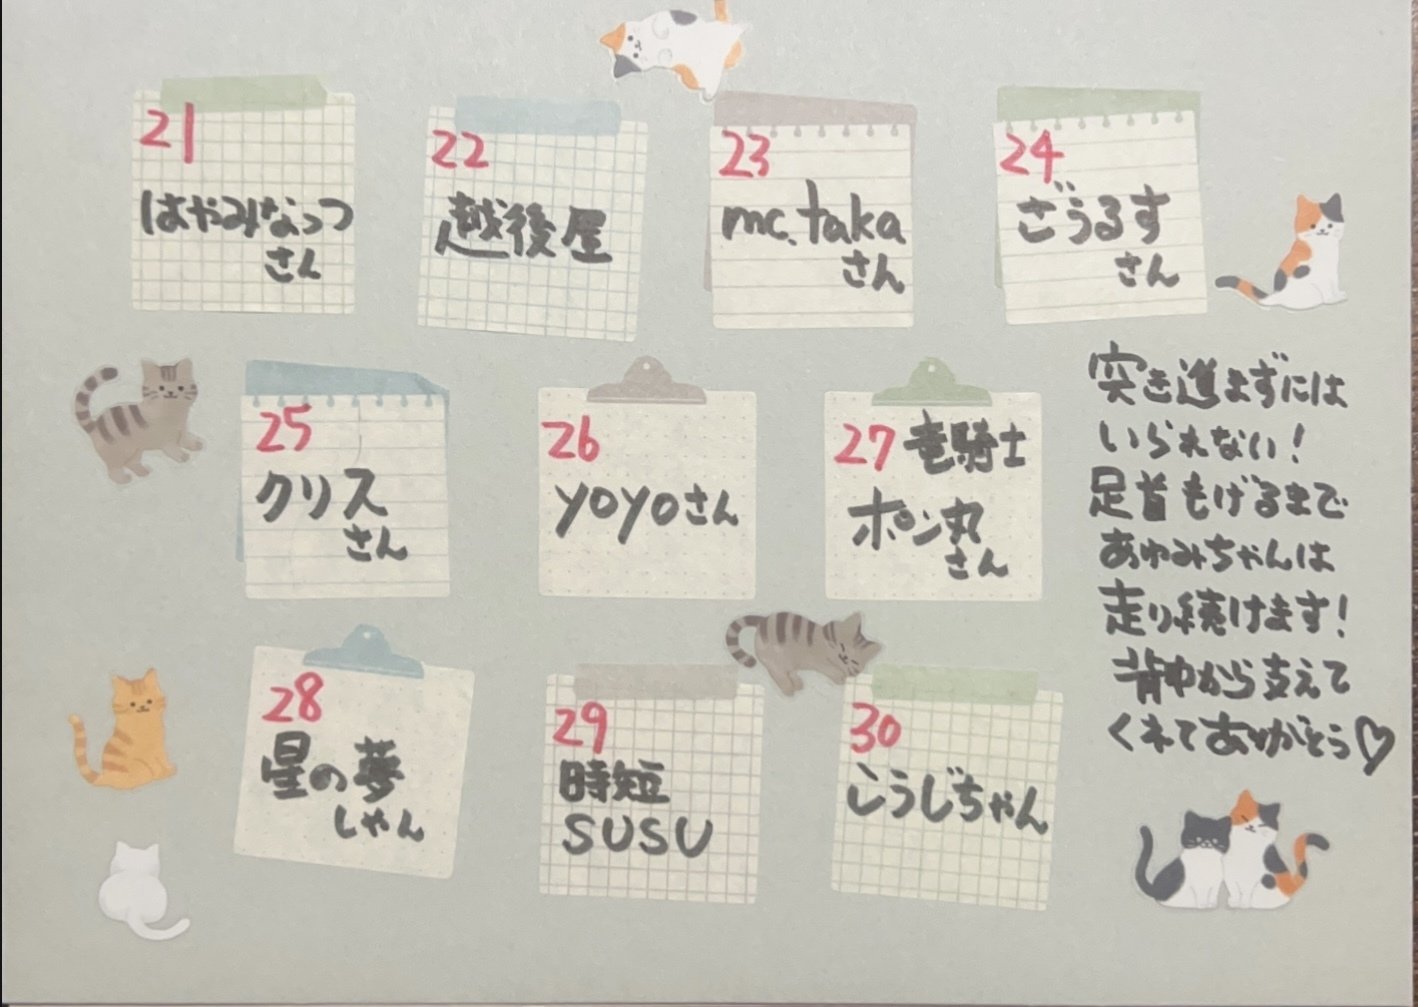 21
はやみなっつ
さん
22
越後屋
23
mc.taka
さん
24
ごうるす
さん
25
クリス
さん
26
yoyoさん
27 竜騎士
ポン丸
さん
28
星の夢
しゃん
29
時短
SUSU
30
こうじちゃん
突き進まずには
いられない!
足首もげるまで
あゆみちゃんは
走り続けます!
背中から支えて
くれてありがとう♡